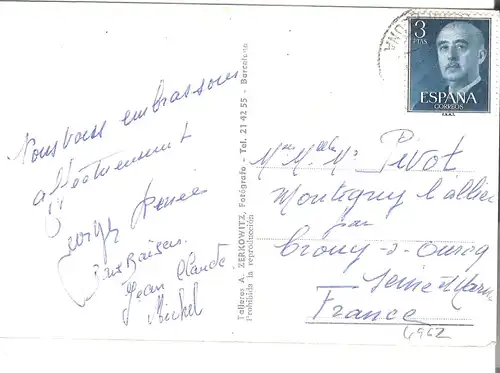 Nous vous embrassons
affectueusement
Georges Renée
Jean Claude
Michel
Talleres A. ZERKOWITZ, Fotógrafo - Tel. 21 42 55 - Barcelona
Prohibida la reproducción
3
PTAS
ESPAÑA
CORREOS
Pivot
Montigny l'allier
par
Crouy-s-Ourcq
Seine et Marne
France
1962